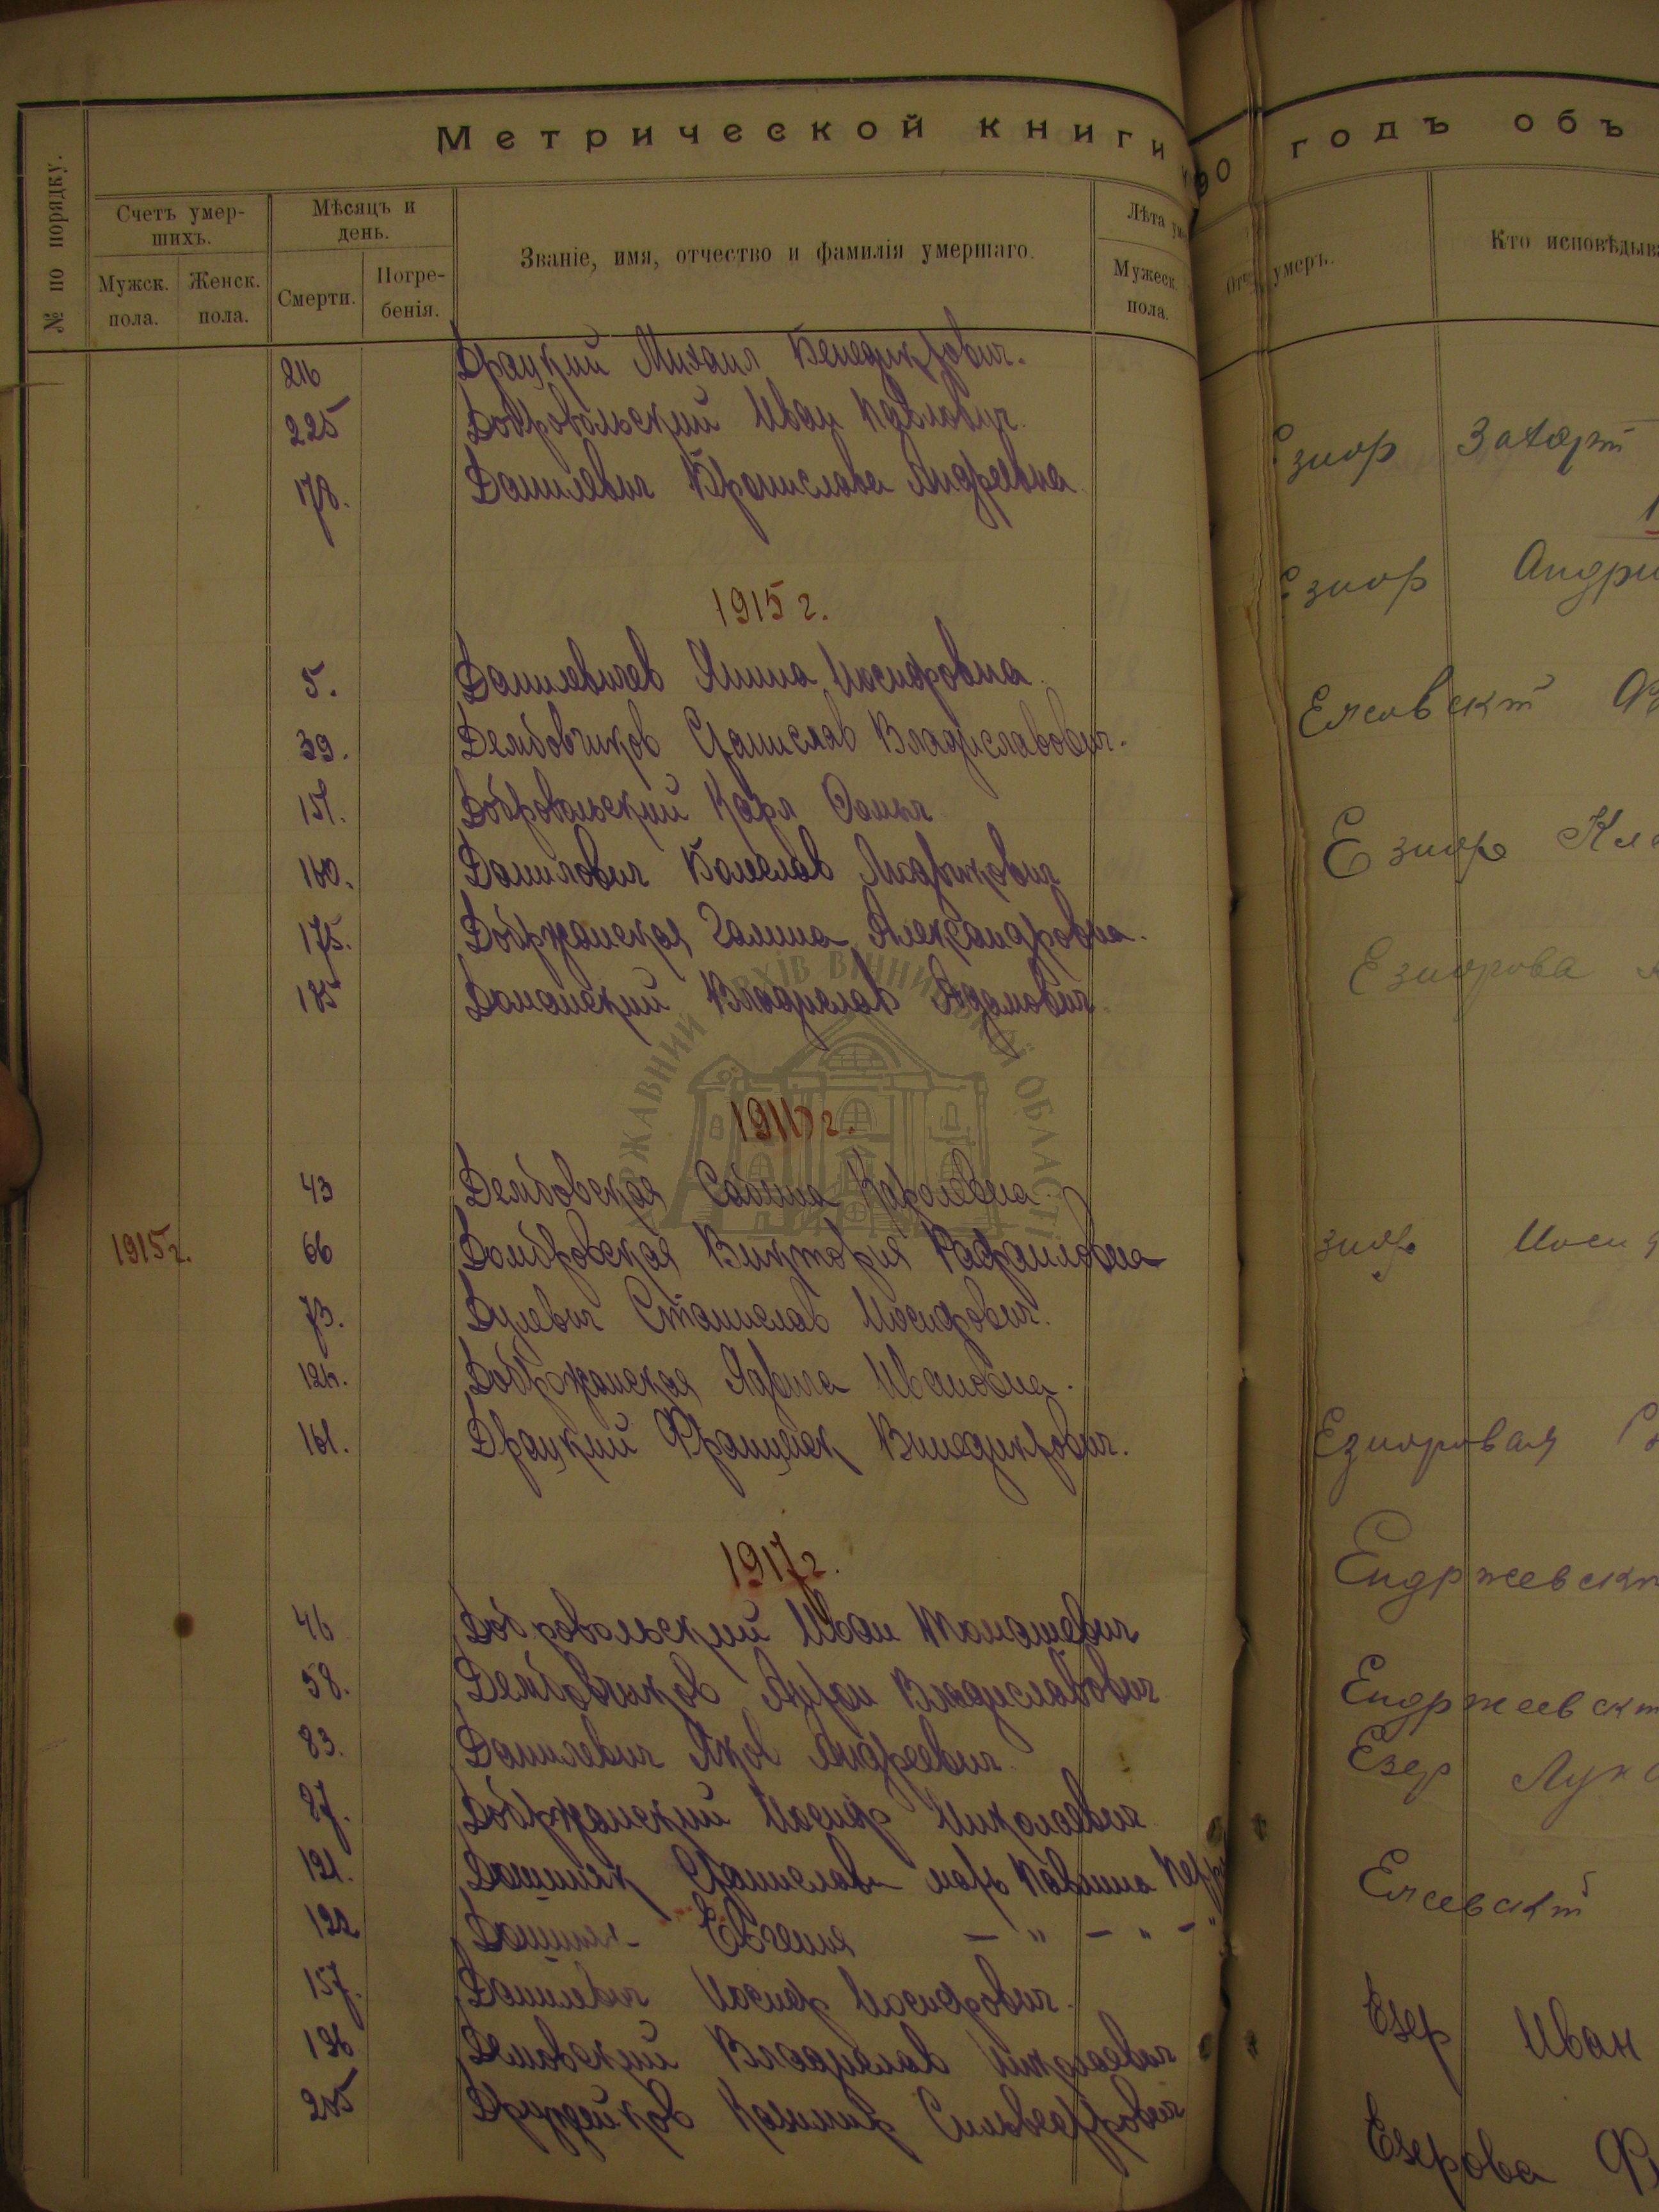 Метрической книги
190
годъ объ
№ по порядку.
Счетъ умер-
шихъ.
Мужск.
пола.
Женск.
пола.
Мѣсяцъ и
день.
Смерти.
Погре-
бенія.
Званіе, имя, отчество и фамилія умершаго.
Лѣта
Мужеск.
пола.
216 Драцкий Михаил Бенедиктович.
225 Добровольский Иван Павлович.
178. Данилевич Бронислава Андреевна
1915 г.
5. Данилевичев Янина Иосифовна.
39. Дембовчиков Станислав Владиславович.
151. Добровольский Карл
160. Данилович Болеслав Людвикович
175. Добржанская Галина Александровна.
185 Доманский Владислав Адамович.
1916 г.
43 Дембовская Сабина Каролевна.
1915 г. 66 Домбровская Виктория Рафаиловна
73. Дулевич Станислав Иосифович.
124. Добржанская Ядвига Ивановна.
161. Драцкий Францишек Винедиктович.
1917 г.
46 Добровольский Иван Томашевич
58. Дембовчиков Антон Владиславович
83. Данилевич Яков Андреевич.
87. Добржанский Иосиф Николаевич
121. Станислав мать Павлина
122 Евгения — " — " — "
157. Данилевич Иосиф Иосифович.
196 Демовский Владислав Николаевич
205 Казимир Сильвестрович
умеръ.
Кто исповѣдыва
Езиор Захарт
Езиор Андри
Езиор
Езиорова
зиор Иоси
Езиоровая
Ендржеевск
Ендржеевскт
Езер Лука
Езер Иван
Езерова
ДЕРЖАВНИЙ АРХІВ ВІННИЦЬКОЇ ОБЛАСТІ